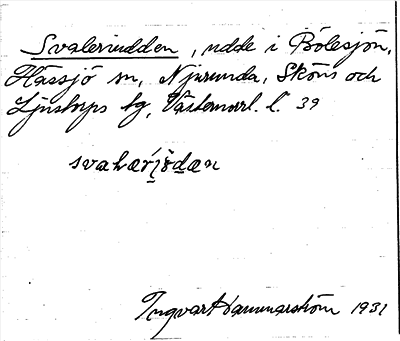 Svaleriudden, udde i Bölesjön,
Hässjö sn, Njurunda, Sköns och
Ljustorps tg, Västernorrl. l. 39
Ingvar Hammarström 1931